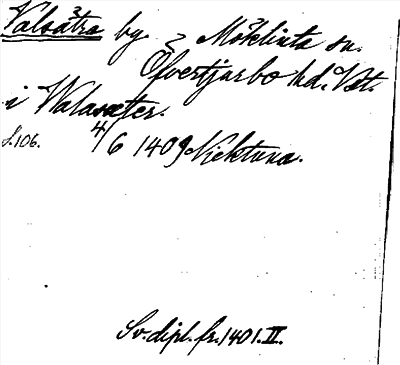 Valsätra by. Möklinta sn.
Öfvertjurbo hd. Vstm.
i Walasæter.
S. 106. 4/6 1409 Niektuna.
Sv. dipl. fr. 1401. II.